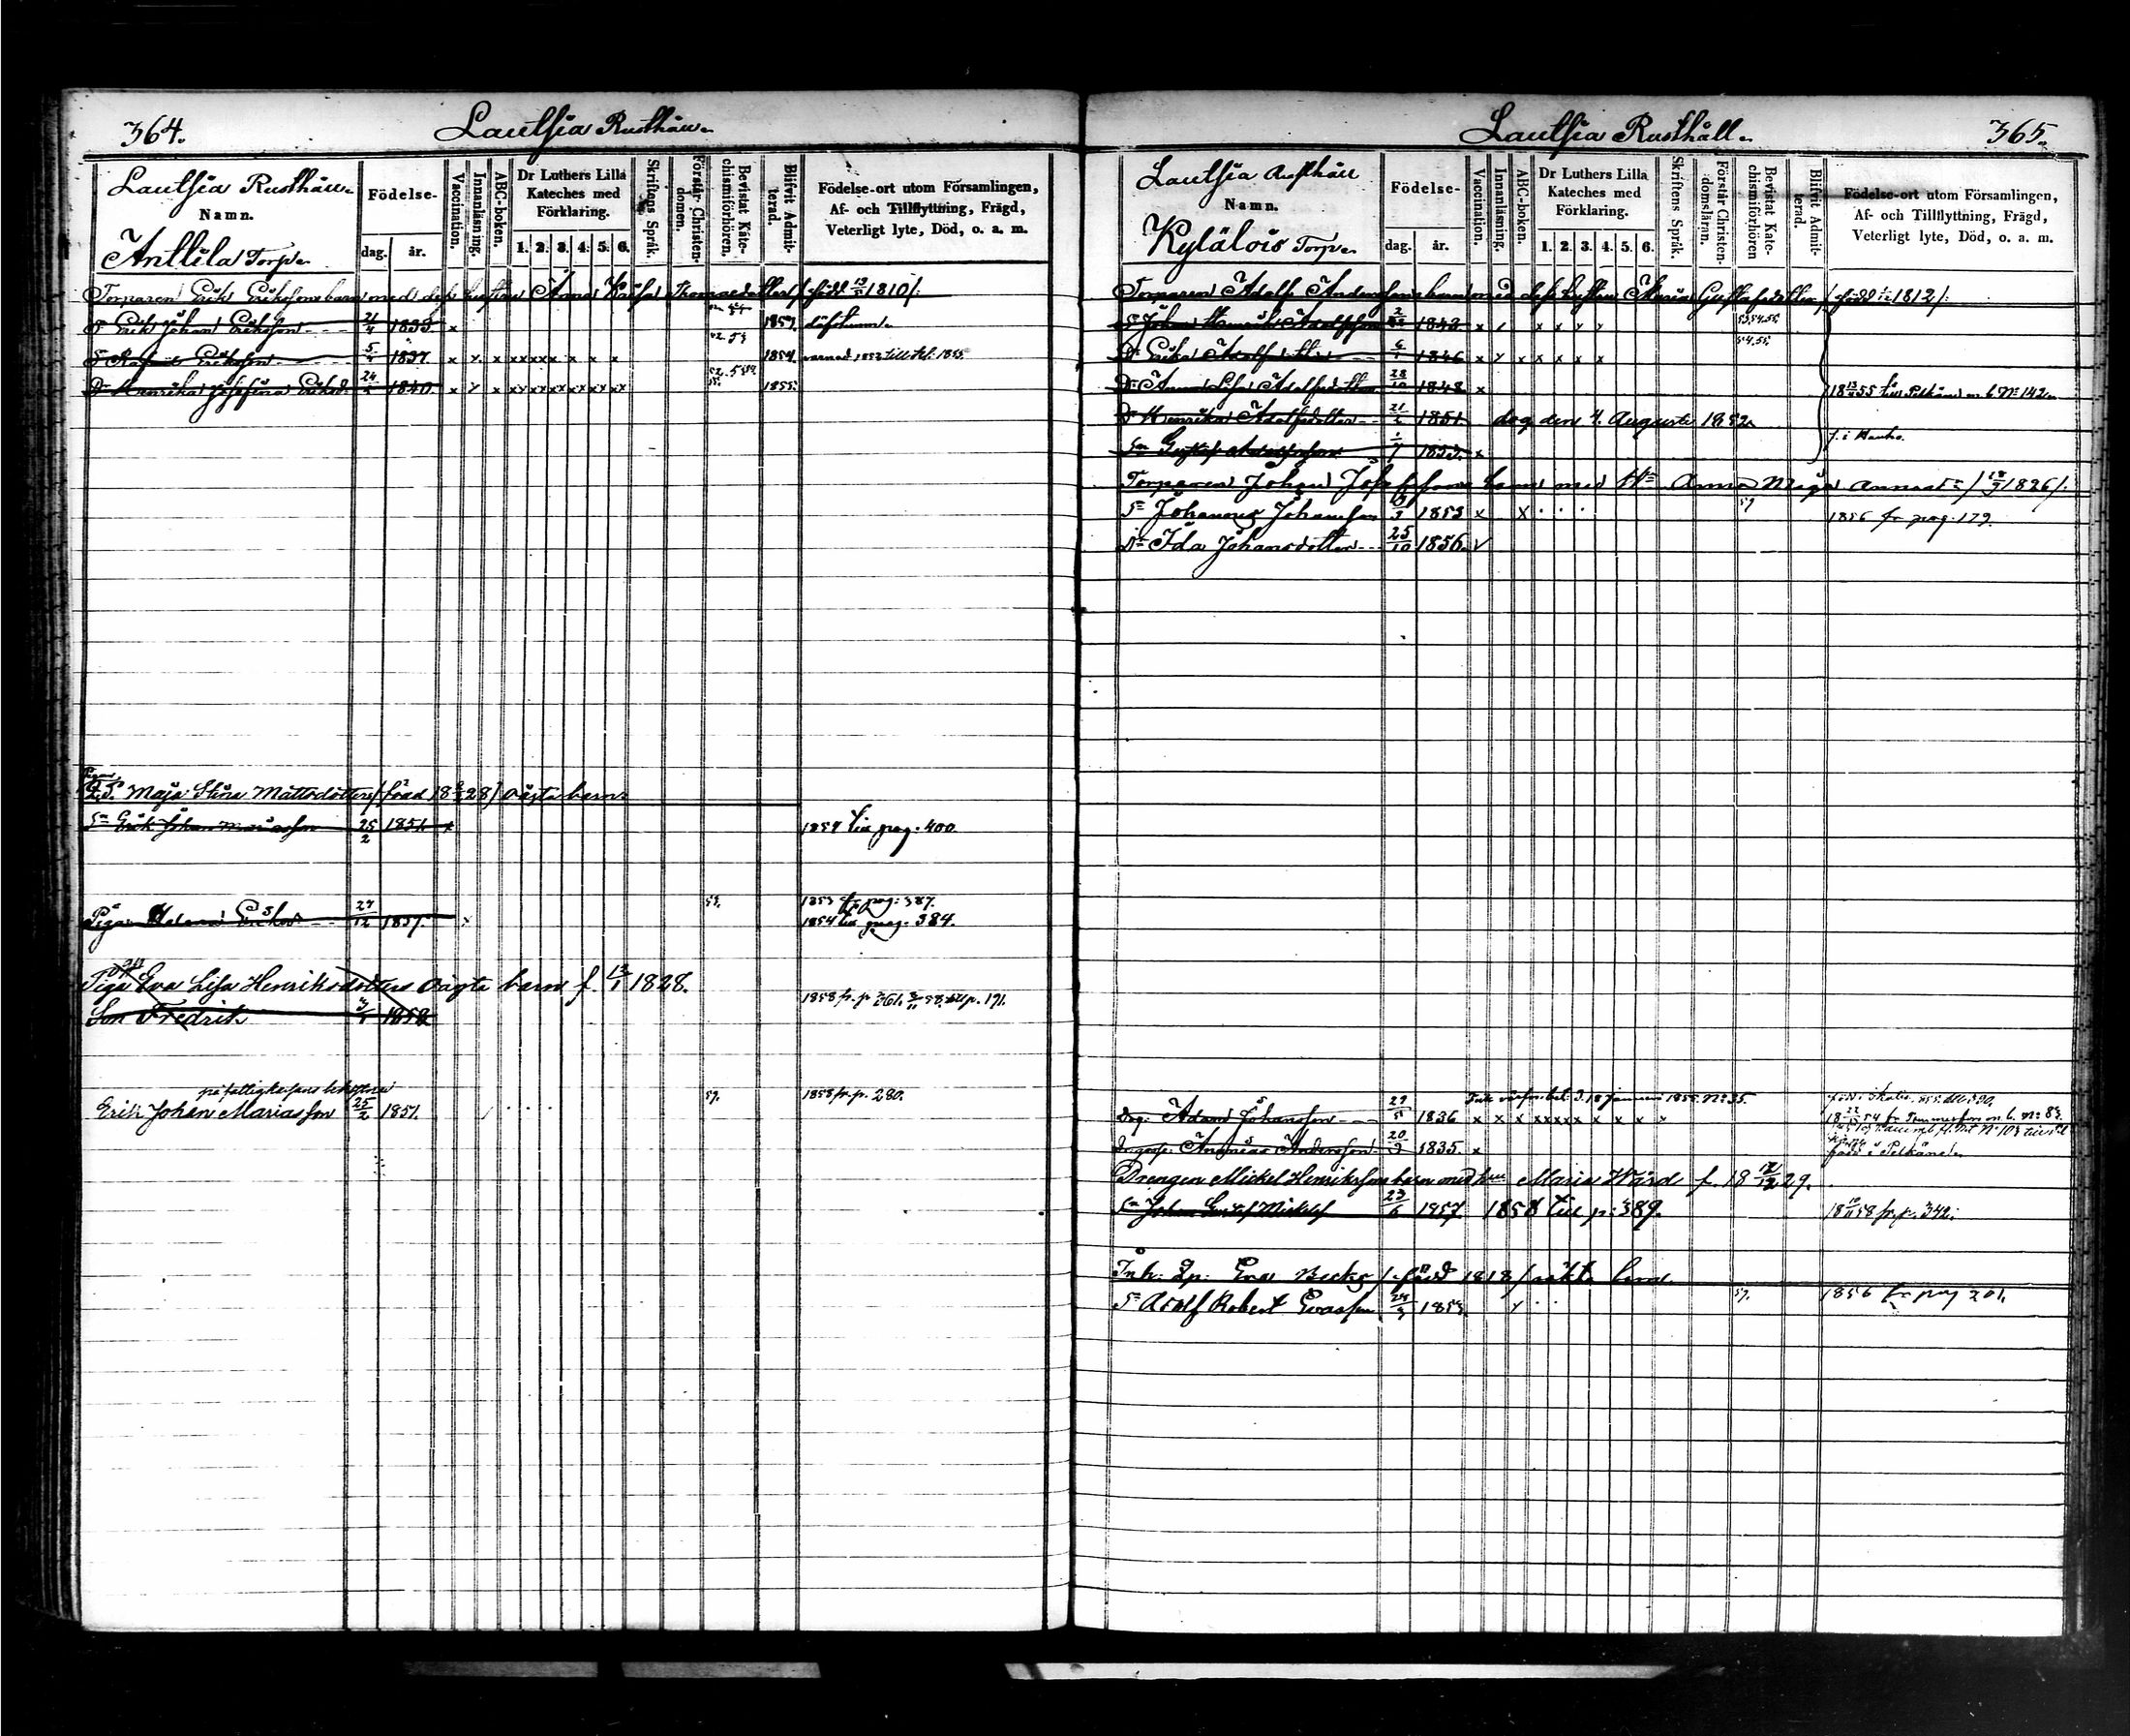 364.
Lautsia Rusthåll.
Lautsia Rusthåll.
Namn.
Anttila Torp.
Födelse-
dag.
år.
Vaccination.
Innanläsning.
ABC-boken.
Dr Luthers Lilla
Kateches med
Förklaring.
1. 2. 3. 4. 5. 6.
Skriftens Språk.
Förstår Christen-
domen.
Bevistat Kate-
chismiförhören.
Blifvit Admit-
terad.
Födelse-ort utom Församlingen,
Af- och Tillflyttning, Frägd,
Veterligt lyte, Död, o. a. m.
Torparen Erik Erikssons barn med dess hustru Anna Kaisa Thomaedotter /född 1810/.
S. Erik Johan Eriksson 21/4 1833 x 1851.
S. Eriksson 5/4 1837 x x x xxxxx x x x 52. 53 1854.
Dr Henrika Josefina Eriksd. 24 1840. x x x 1855.
Maja Stina Mattsdotters /född 18 28/ oägta barn.
Sn Erik Johan Mariasson 25/2 1851 x 1854 till pag. 400.
1853 fr pag: 387.
Piga Helena Eriksd 27/12 1837. x 53. 1854 till pag. 384.
Piga Eva Lisa Henriksdotters oägta barn f. 13/1 1828.
Son Fredrik 1858 1858 fr. p 361. 58. till p. 191.
på fattigkassans bekostnad
Erik Johan Mariasson 25/2 1851. 57. 1858 fr. p. 280.
Lautsia Rusthåll.
365.
Lautsia Rusthåll
Namn.
Kylälois Torp.
Födelse-
dag.
år.
Vaccination.
Innanläsning.
ABC-boken.
Dr Luthers Lilla
Kateches med
Förklaring.
1. 2. 3. 4. 5. 6.
Skriftens Språk.
Förstår Christen-
domsläran.
Bevistat Kate-
chismiförhören
Blifvit Admit-
terad.
Födelse-ort utom Församlingen,
Af- och Tillflyttning, Frägd,
Veterligt lyte, Död, o. a. m.
Torparen Adolf Anderssons barn med dess hustru Maria Gustafsdotter /född 1812/.
S. Johan Henrik Adolfsson 1843 x x x 53,54.55.
Dr Erika Adolfsdotter 6/1 1846 x x x x x x x 54.55.
Dr Anna Lisa Adolfsdotter 28/10 1848 x
Dr Henrika Adolfsdotter 21 1851. dog den 4. Augusti 1852.
Sn Gustaf Adolfsson 1/7 1853. x
Torparen Johan Josefssons barn med Hu Anna Maja Annast 1826/.
Sn Johannes Johansson 1853 x x 57 1856 fr pag. 179.
Dr Ida Johansdotter 25/10 1856.
Drg. Adam Johansson 29 1836 x x x xxxxx x x x x
Ananias Andersson 20/9 1835. x född i Pelkäne
Drengen Mickel Henrikssons barn med hu Maria Wärd f. 18 12/12 29.
Sn Johan Gustaf Mickels 23/6 1857 1858 till p: 389. 18 58 fr. p. 342.
Inh. Qp. Eva Becks /född 1818/ oäkta barn.
Sn Adolf Robert Evasson 24/9 1853. 57. 1856 fr pag 201.